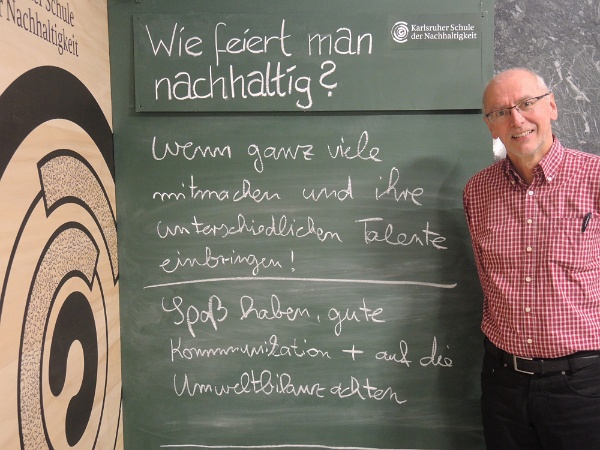 Karlsruher Schule
der Nachhaltigkeit
Wie feiert man
nachhaltig?
Karlsruher Schule
der Nachhaltigkeit
Wenn ganz viele
mitmachen und ihre
unterschiedlichen Talente
einbringen!
Spaß haben, gute
Kommunikation + auf die
Umweltbilanz achten